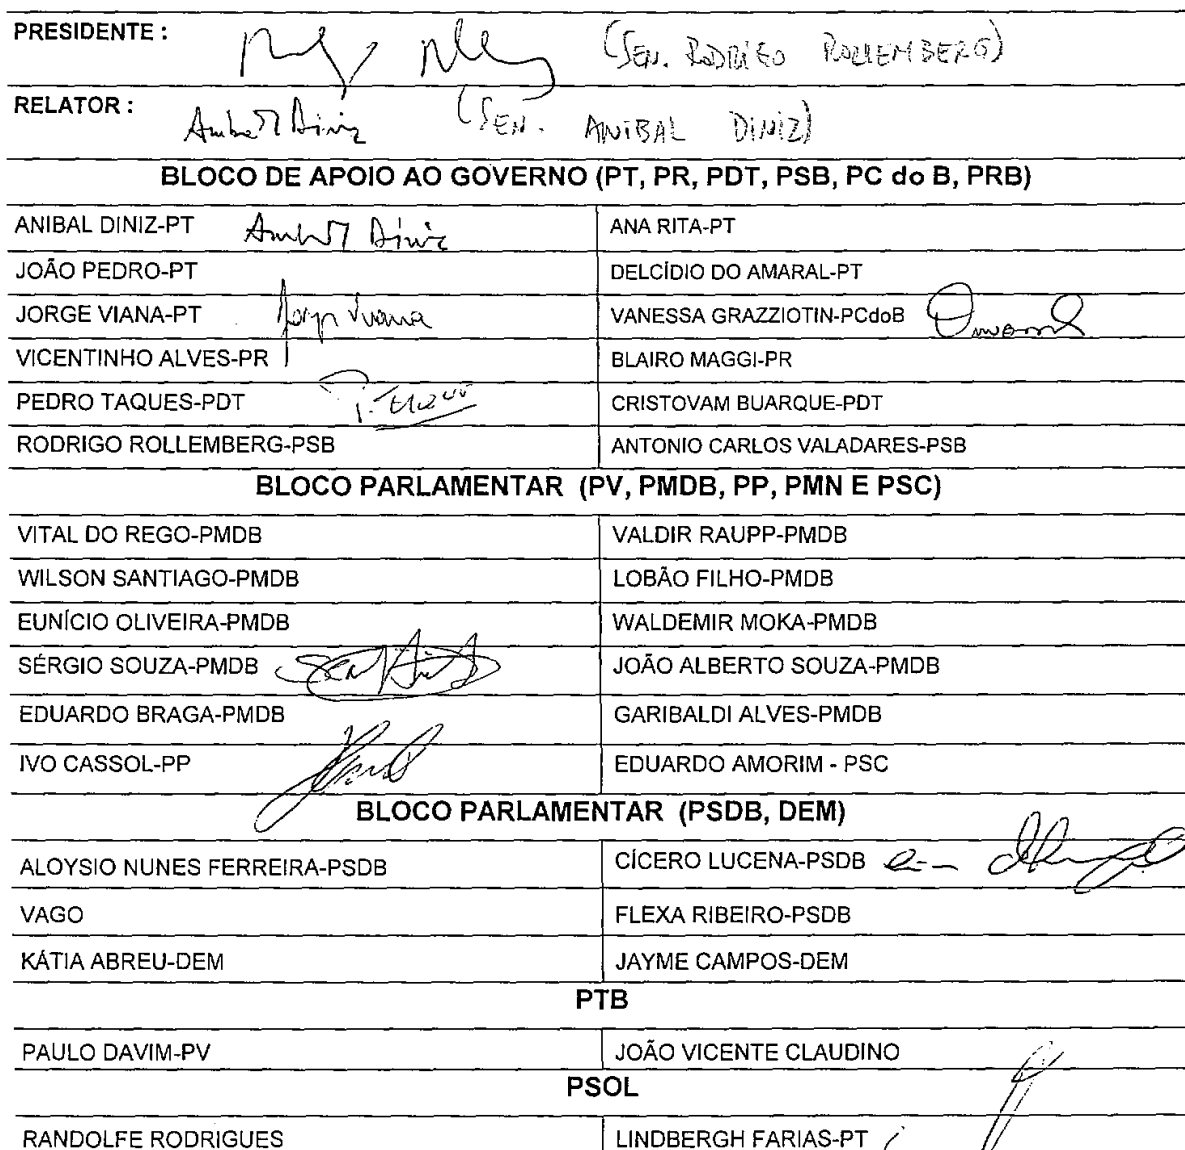 PRESIDENTE : (SEN. RODRIGO ROLLEMBERG)
RELATOR : Anibal Diniz (SEN. ANIBAL DINIZ)
BLOCO DE APOIO AO GOVERNO (PT, PR, PDT, PSB, PC do B, PRB)
ANIBAL DINIZ-PT Anibal Diniz ANA RITA-PT
JOÃO PEDRO-PT DELCÍDIO DO AMARAL-PT
JORGE VIANA-PT Jorge Viana VANESSA GRAZZIOTIN-PCdoB
VICENTINHO ALVES-PR BLAIRO MAGGI-PR
PEDRO TAQUES-PDT P. Taques CRISTOVAM BUARQUE-PDT
RODRIGO ROLLEMBERG-PSB ANTONIO CARLOS VALADARES-PSB
BLOCO PARLAMENTAR (PV, PMDB, PP, PMN E PSC)
VITAL DO REGO-PMDB VALDIR RAUPP-PMDB
WILSON SANTIAGO-PMDB LOBÃO FILHO-PMDB
EUNÍCIO OLIVEIRA-PMDB WALDEMIR MOKA-PMDB
SÉRGIO SOUZA-PMDB JOÃO ALBERTO SOUZA-PMDB
EDUARDO BRAGA-PMDB GARIBALDI ALVES-PMDB
IVO CASSOL-PP EDUARDO AMORIM - PSC
BLOCO PARLAMENTAR (PSDB, DEM)
ALOYSIO NUNES FERREIRA-PSDB CÍCERO LUCENA-PSDB
VAGO FLEXA RIBEIRO-PSDB
KÁTIA ABREU-DEM JAYME CAMPOS-DEM
PTB
PAULO DAVIM-PV JOÃO VICENTE CLAUDINO
PSOL
RANDOLFE RODRIGUES LINDBERGH FARIAS-PT